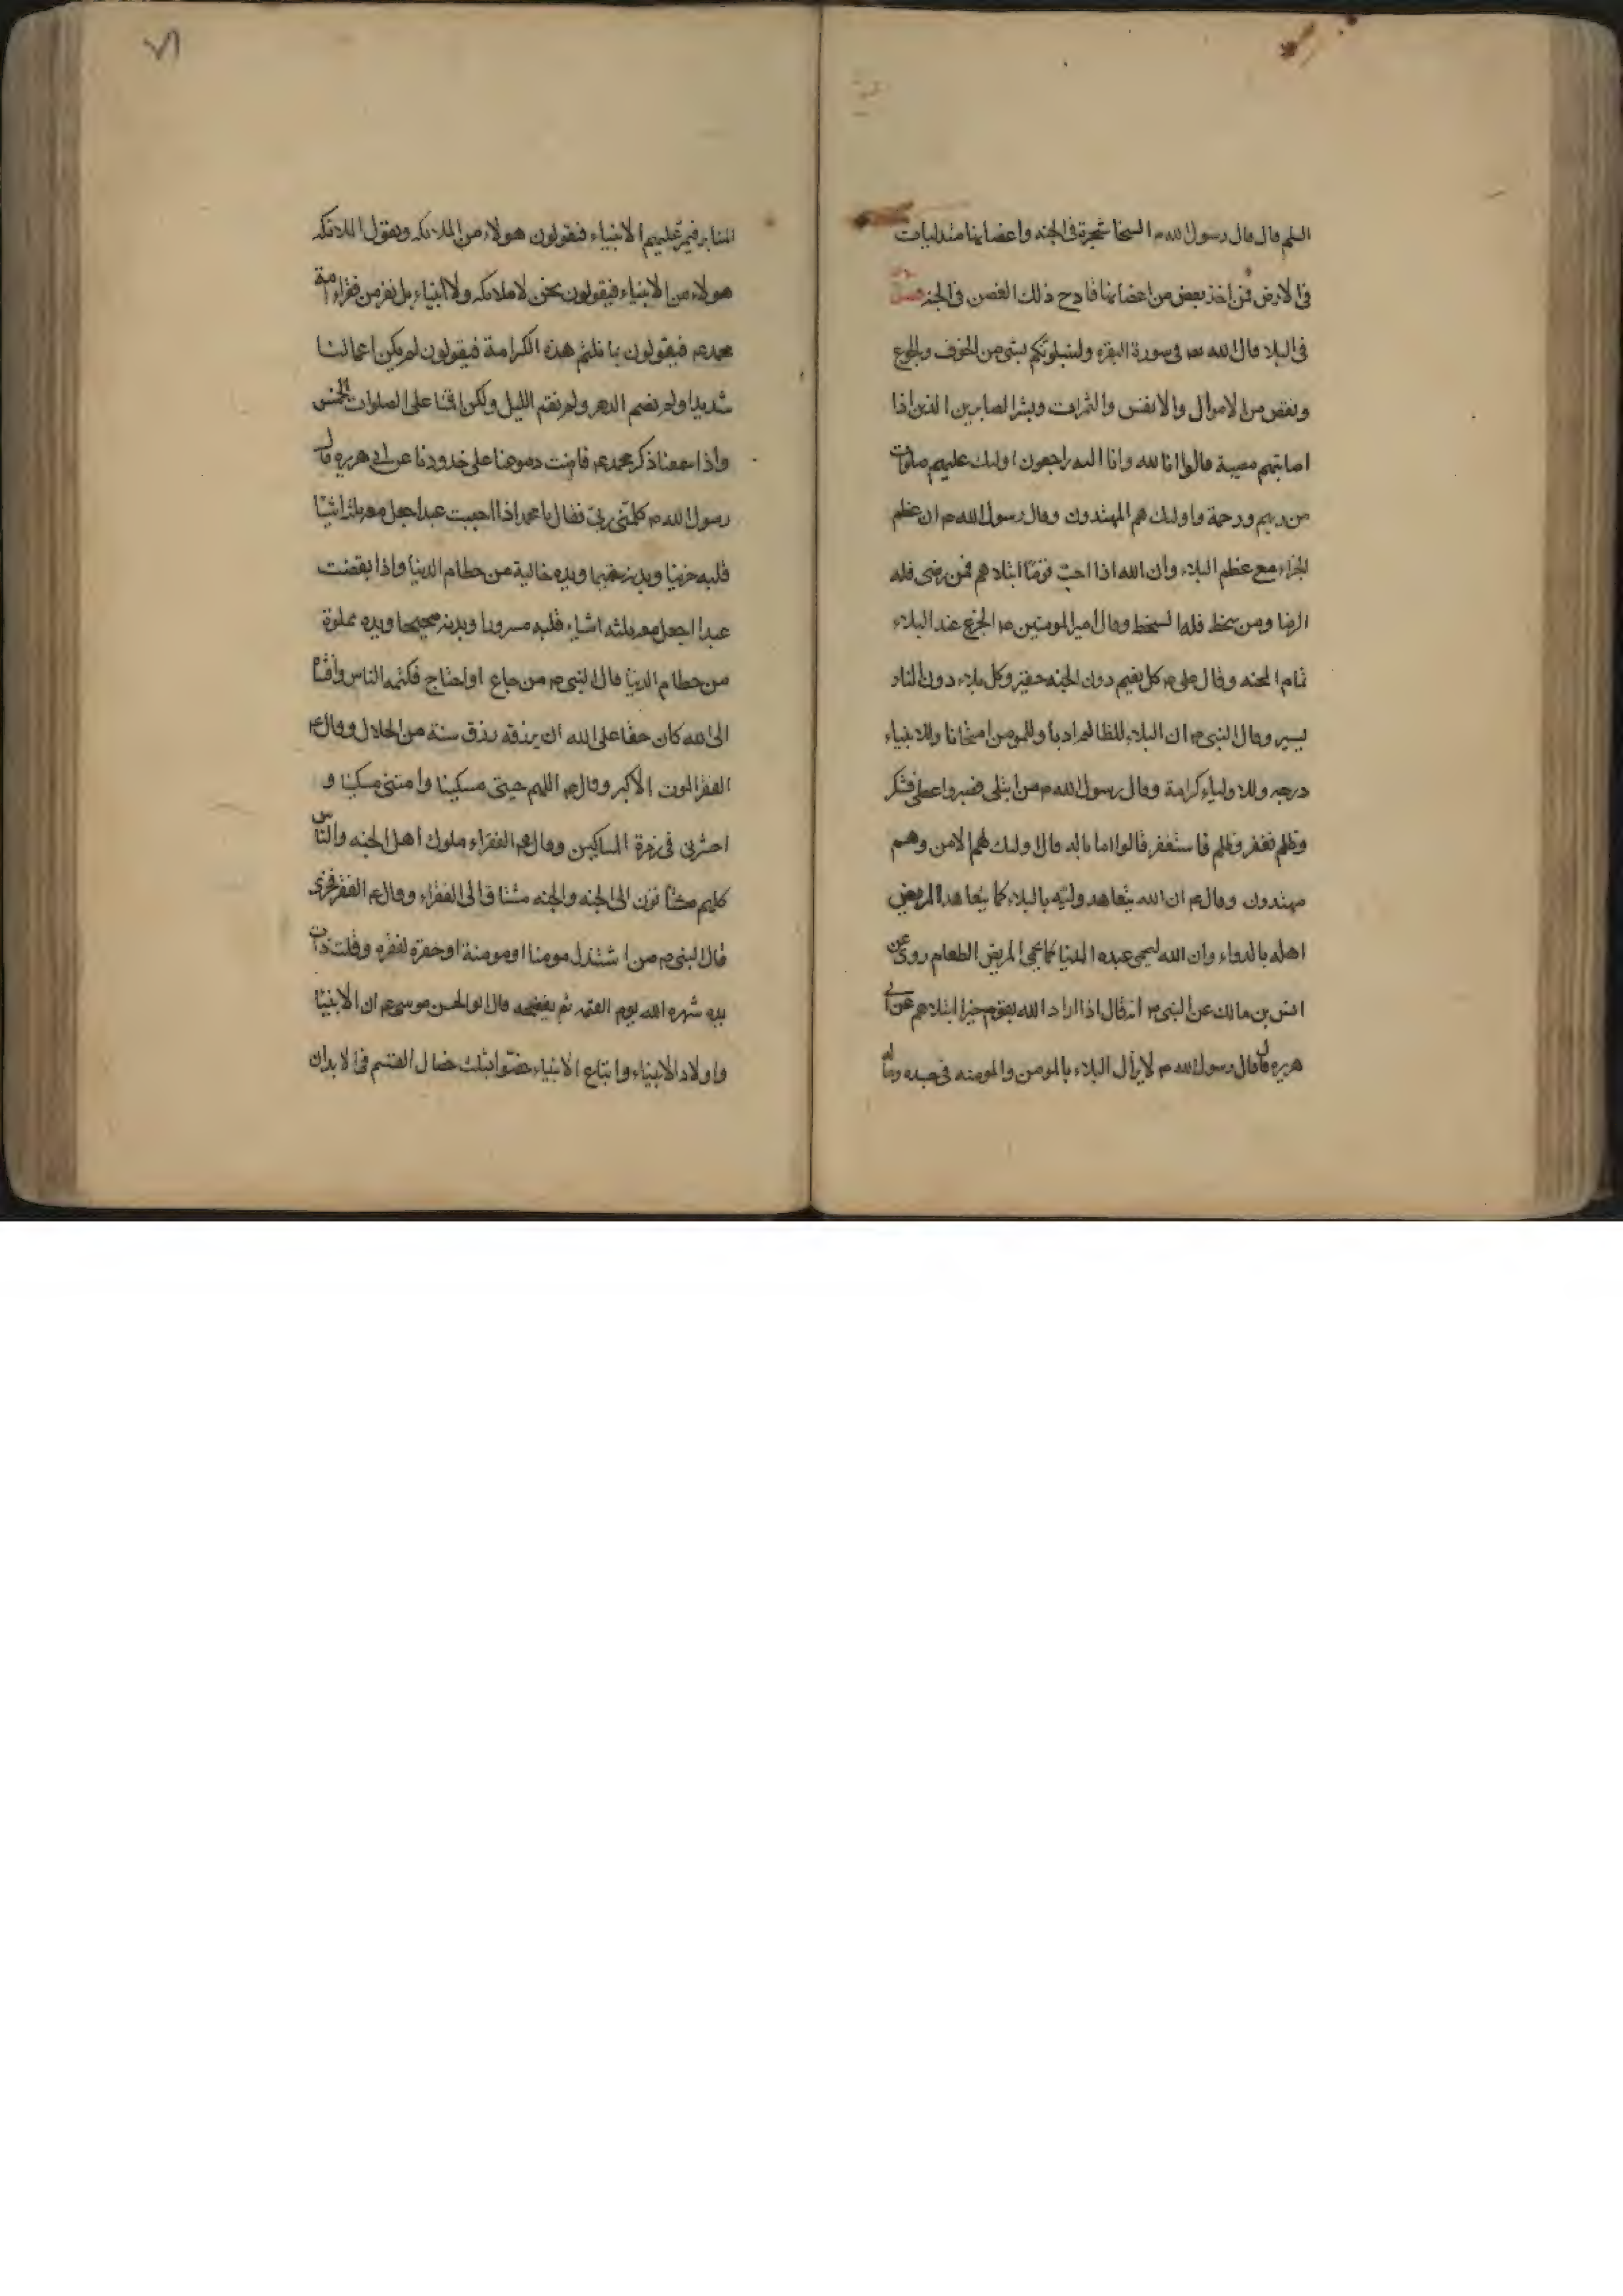 السلم قال قال رسول الله ص السخا شجرة فى الجنه واغصانها متدليات
فى الارض فمن اخذ بغصن من اغصانها قاده ذلك الغصن فى الجنه فصل
فى البلا قال الله تعـ فى سورة البقره ولنبلونكم بشى من الخوف والجوع
ونقص من الاموال والانفس والثمرات وبشر الصابرين الذين اذا
اصابتهم مصيبة قالوا انا لله وانا اليه راجعون اوليك عليهم صلوات
من ربهم ورحمة واوليك هم المهتدون وقال رسول الله ص ان عظم
الجزاء مع عظم البلاء وان الله اذا احب قومًا ابتلاهم فمن رضى فله
الرضا ومن سخط فله السخط وقال امير المومنين عم الجزع عند البلاء
تمام المحنه وقال على عم كل نعيم دون الجنه حقير وكل بلاء دون النار
يسير وقال النبى ص ان البلاء للظالم ادبا وللمومن امتحانا وللانبياء
درجه وللاولياء كرامة وقال رسول الله ص من ابتلى فصبر واعطى فشكر
وظلم فغفر وظلم فاستغفر قالوا ما باله قال اوليك لهم الامن وهم
مهتدون وقال عم ان الله يتعاهد وليه بالبلاء كما يتعاهد المريض
اهله بالدواء وان الله ليحمى عبده الدنيا كما يحمى المريض الطعام روى عن
انس بن مالك عن النبى ص انه قال اذا اراد الله بقوم خيرا ابتلاهم عن ابى
هريره قال قال رسول الله ص لا يزال البلاء بالمومن والمومنه فى جسده وماله
المنابر فيمر عليهم الانبياء فيقولون هولاء من الملائكه ويقول الملائكه
هولاء من الانبياء فيقولون نحن لا ملائكه ولا انبياء بل نفر من فقراء امة
محمد عم فيقولون بما نلتم هذه الكرامة فيقولون لم يكن اعمالنا
شديدا ولم نصم الدهر ولم نقم الليل ولكن اقمنا على الصلوات الخمس
واذا سمعنا ذكر محمد عم فاضت دموعنا على خدودنا عن ابى هريره قال
رسول الله ص كلمنى ربى فقال يا محمد اذا احببت عبدا جعل معه ثلثة اشيا
قلبه حزينا وبدنه سقيما ويده خالية من حطام الدنيا واذا ابغضت
عبدا اجعل معه ثلثه اشياء قلبه مسرورا وبدنه صحيحا ويده مملوة
من حطام الدنيا قال النبى ص من جاع او احتاج فكتمه الناس وافشاه
الى الله كان حقا على الله ان يرزقه رزق سنة من الحلال وقال عم
الفقر الموت الاكبر وقال عم اللهم احينى مسكينا وامتنى مسكينا و
احشرنى فى زمرة المساكين وقال عم الفقراء ملوك اهل الجنه والناس
كلهم مشتاقون الى الجنه والجنه مشتاق الى الفقراء وقال عم الفقر فخرى
قال النبى ص من استذل مومنا او مومنة او حقره لفقره وقلت ذات
يده شهره الله يوم القيمه ثم يفضحه قال ابو الحسن موسى عم ان الانبيا
واولاد الانبياء واتباع الانبياء خصوا بثلث خصال السقم فى الابدان